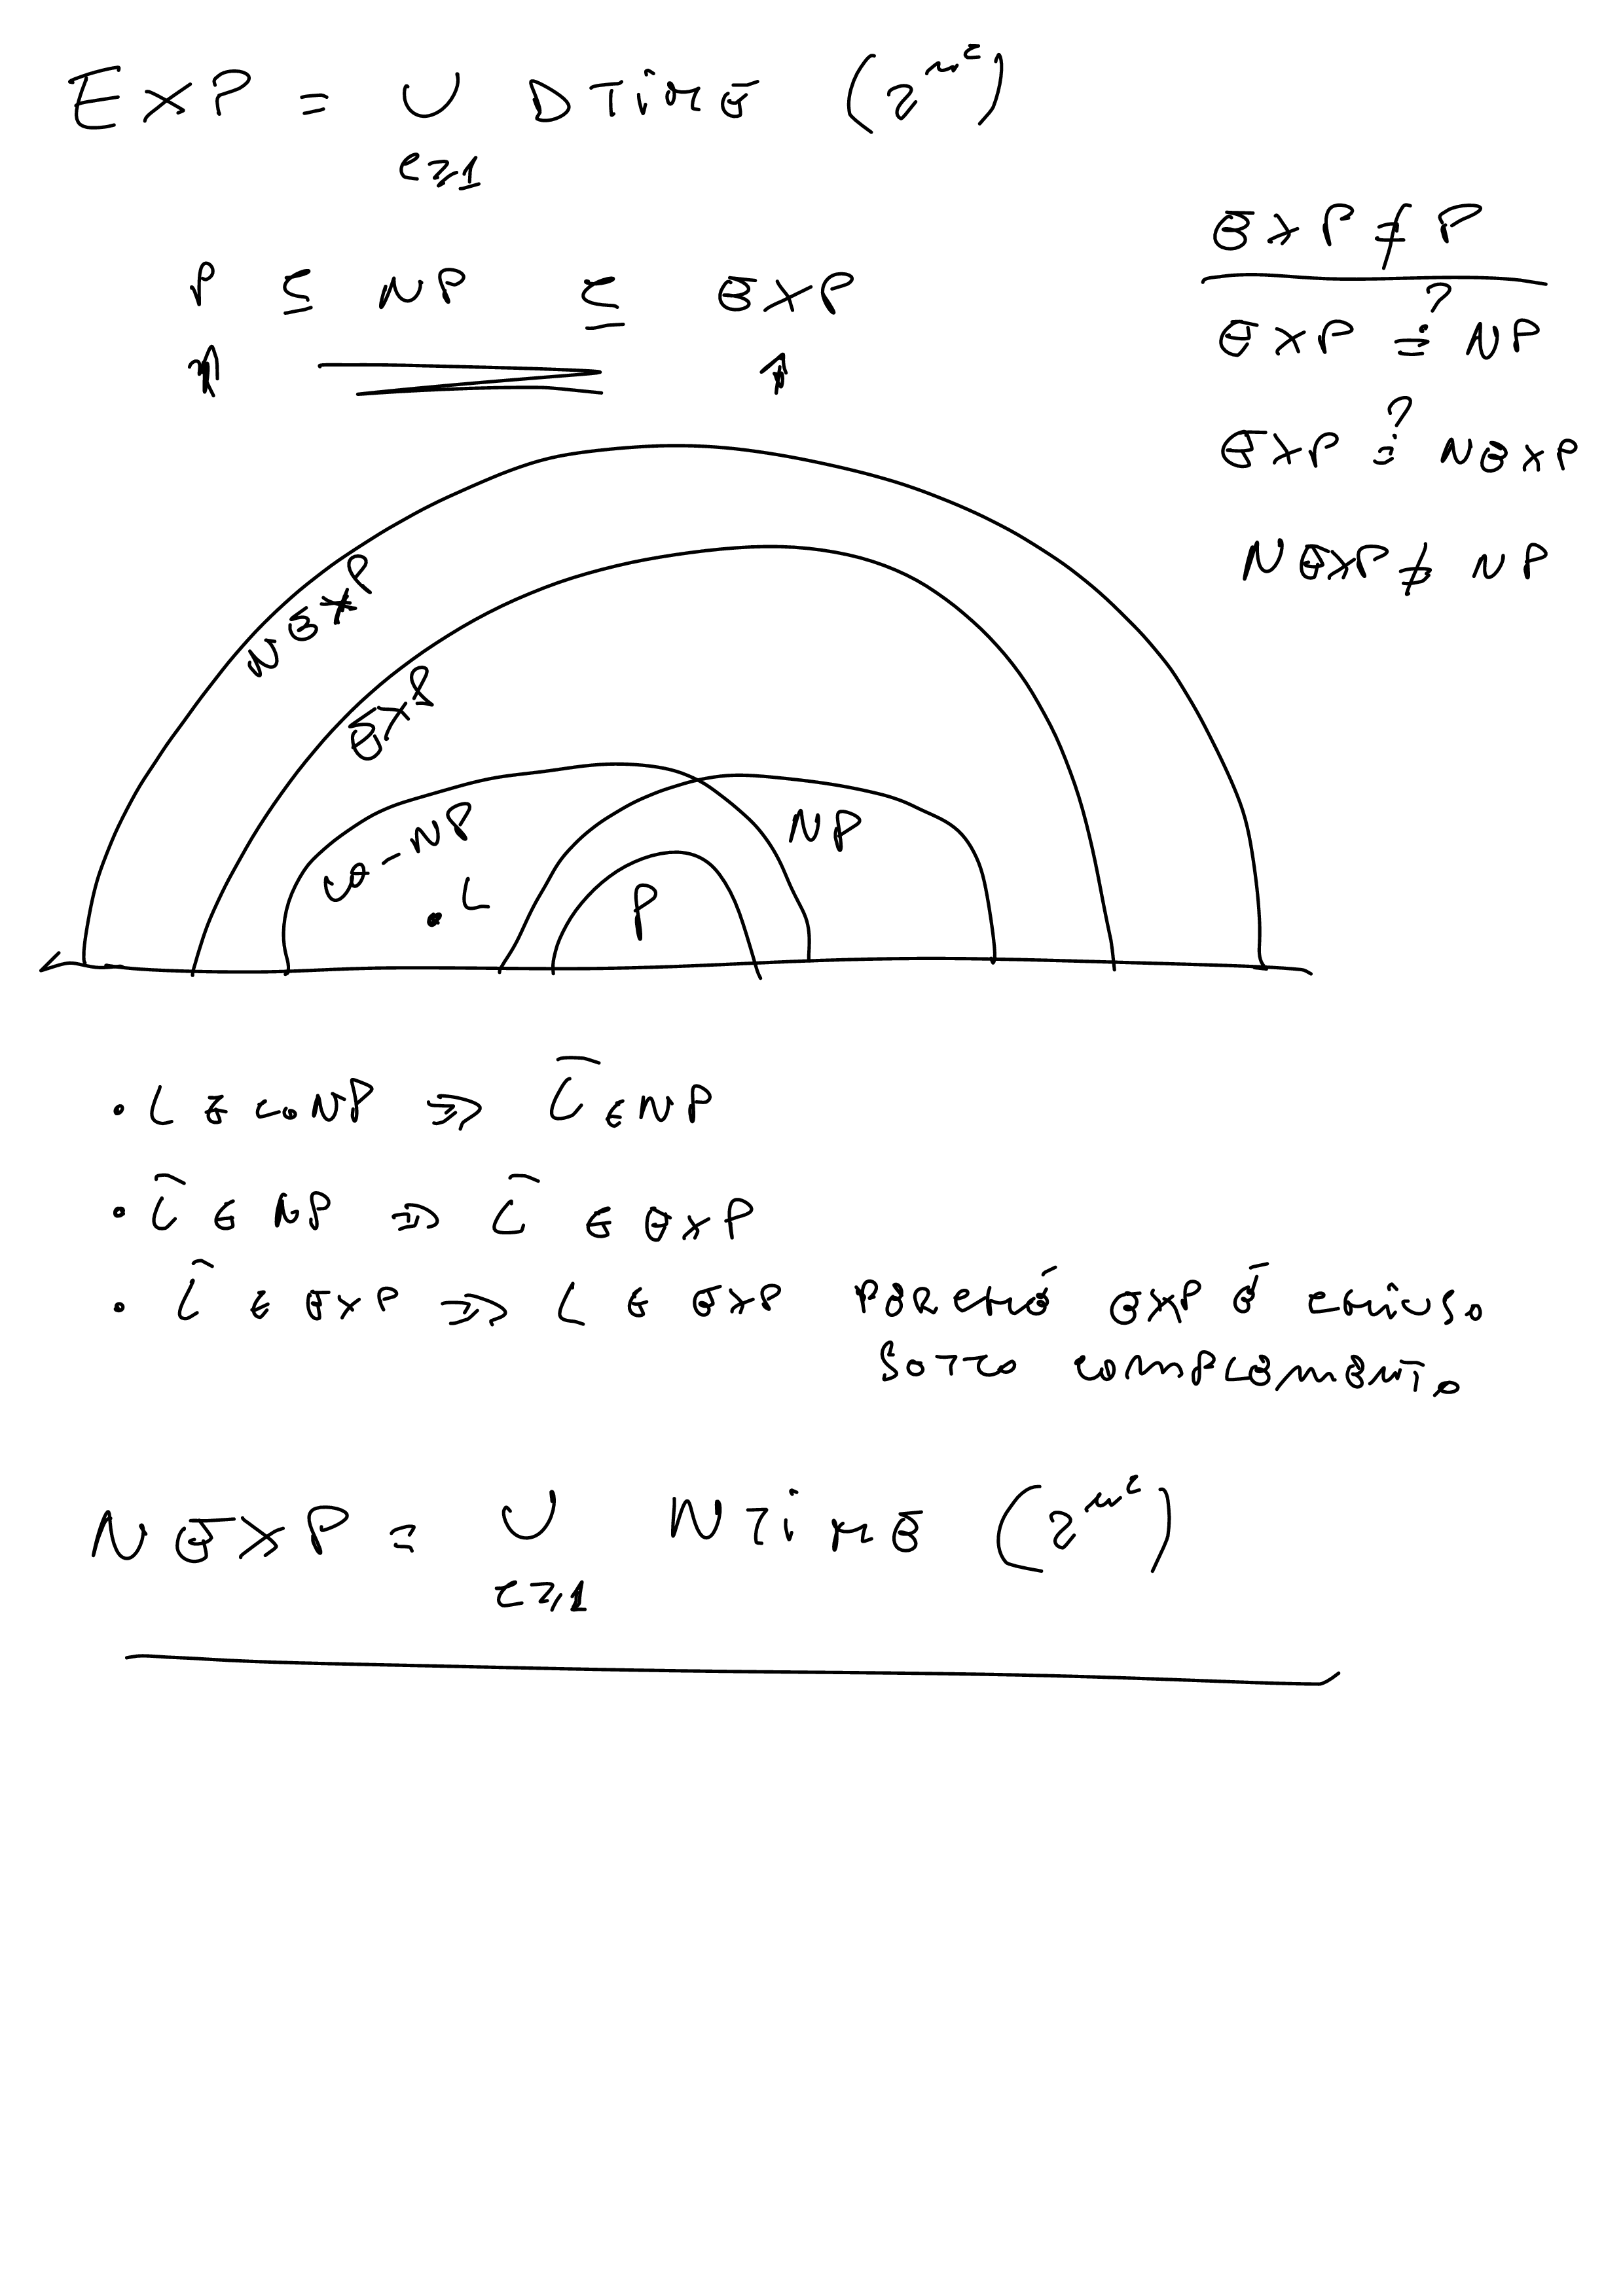 EXP = ∪ DTIME (2^n^c)
c≥1
P ⊆ NP ⊆ EXP
EXP ≠ P
EXP =? NP
EXP =? NEXP
NEXP ≠ NP
NEXP
EXP
co-NP
NP
. L
P
• L ∈ coNP ⇒ L̅ ∈ NP
• L̅ ∈ NP ⇒ L̅ ∈ EXP
• L̅ ∈ EXP ⇒ L ∈ EXP PERCHÉ EXP É CHIUSO
SOTTO COMPLEMENTO
NEXP = ∪ NTIME (2^n^c)
c≥1